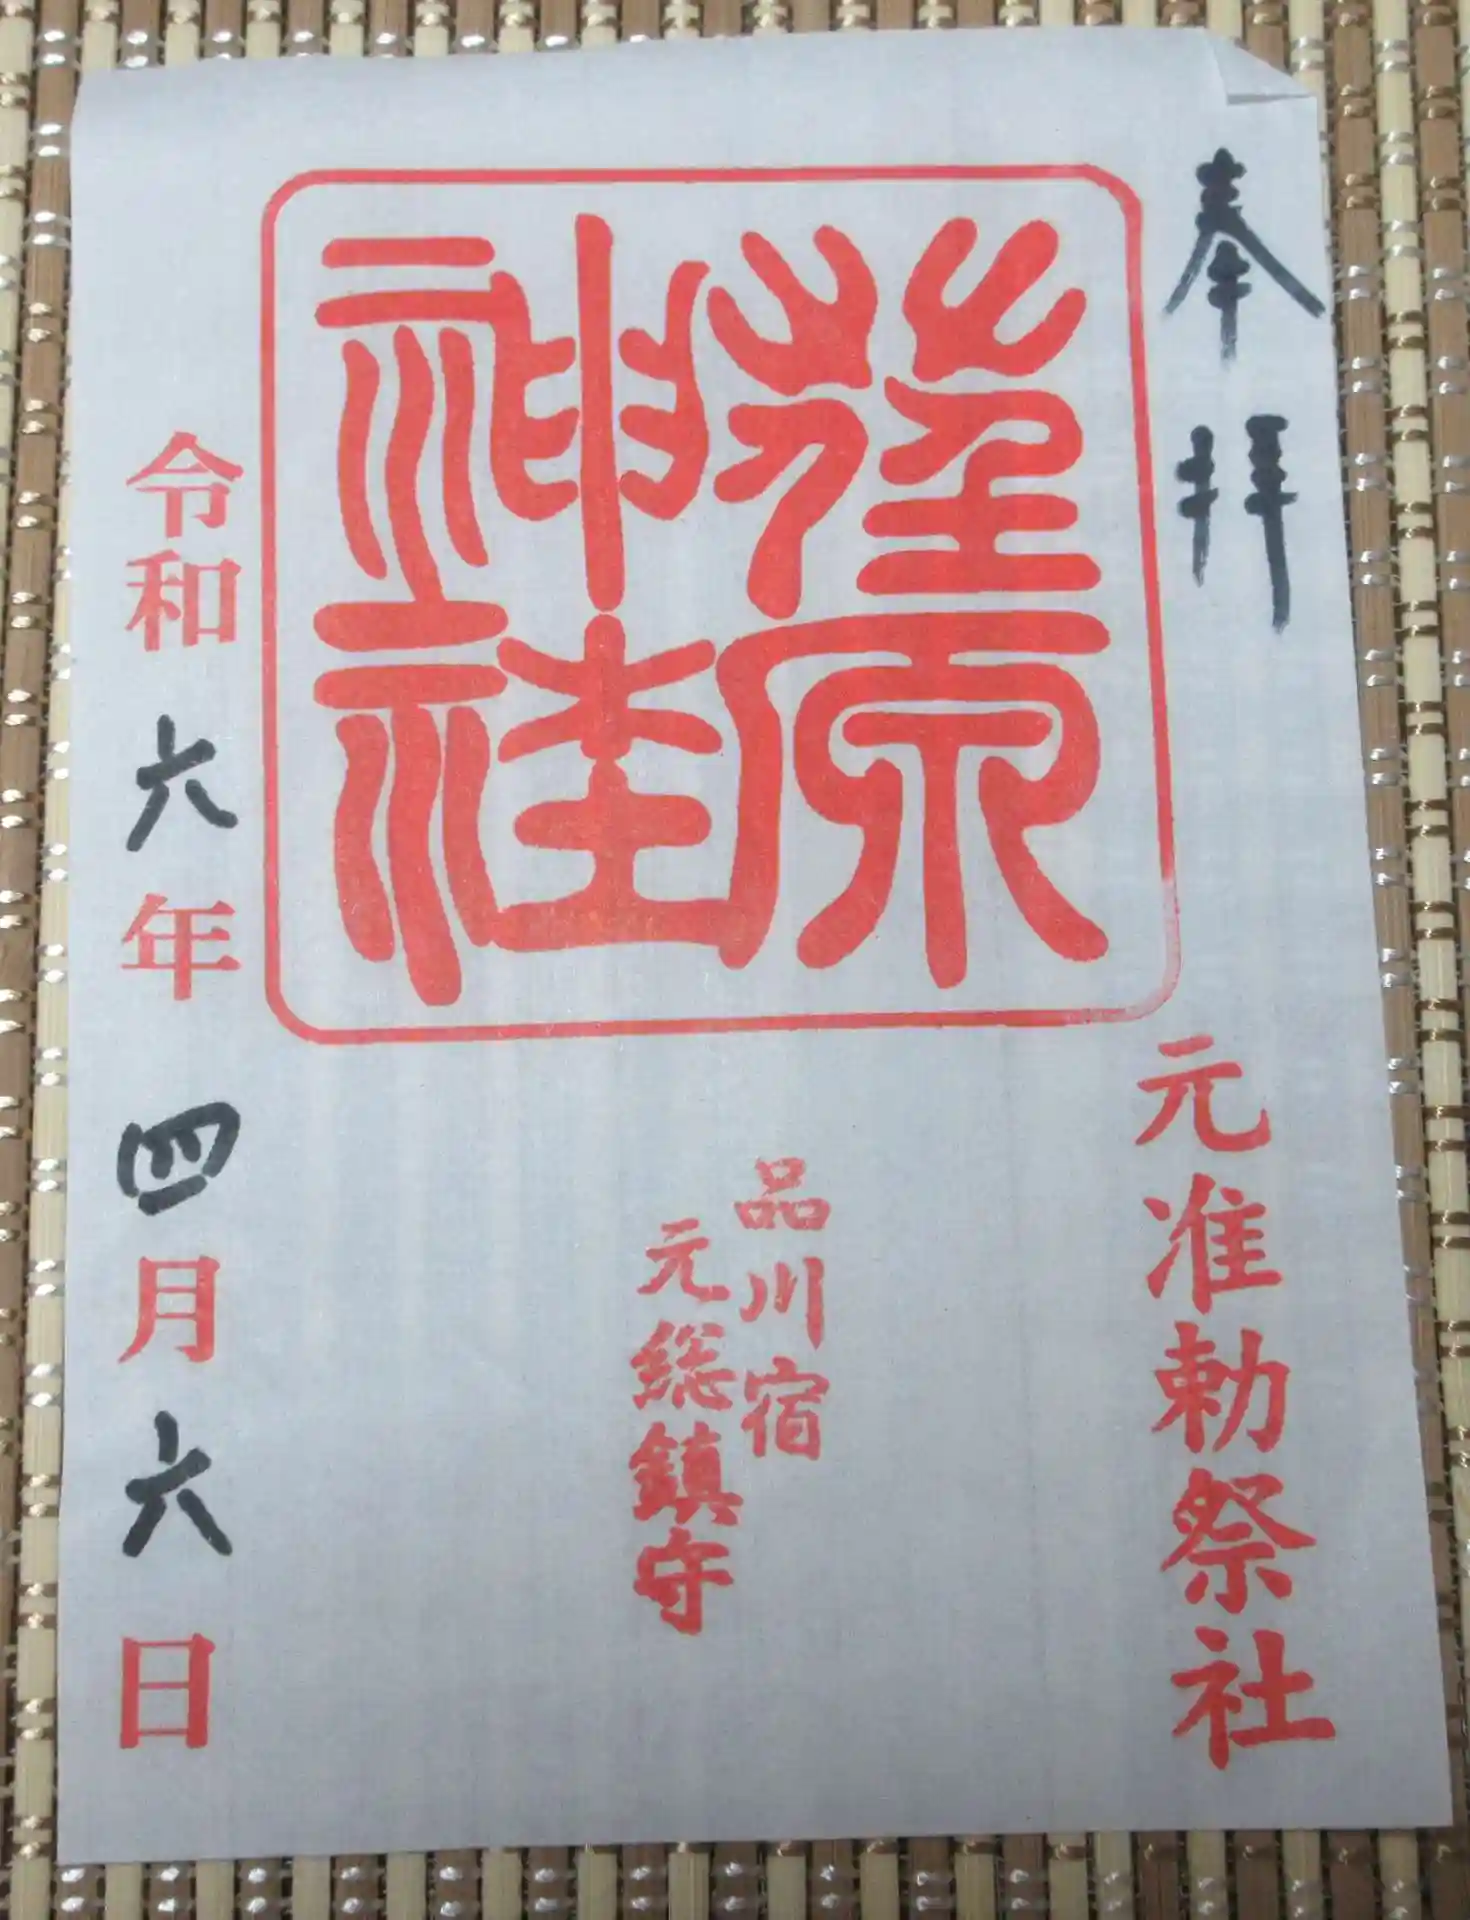 奉拝
元准勅祭社
荏原
神社
品川宿
元総鎮守
令和六年四月六日